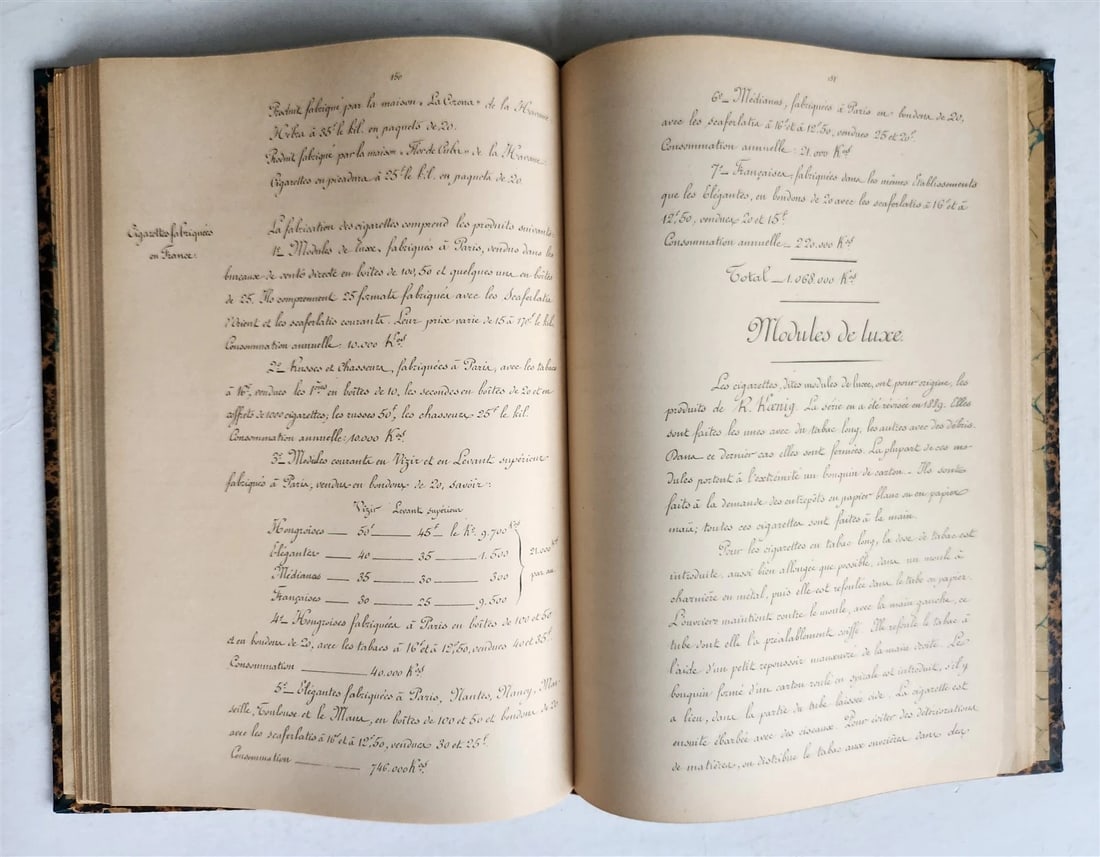 150
Produit fabriqué par la maison « La Corona » de la Havane
Hebra à 35f le kil. en paquets de 20.
Produit fabriqué par la maison « Flor de Cuba » de la Havane
Cigarettes en picadura à 25f le kil. en paquets de 20.
Cigarettes fabriquées
en France.
La fabrication des cigarettes comprend les produits suivants
1º Modules de luxe, fabriqués à Paris, vendus dans les
bureaux de vente directe en boîtes de 100, 50 et quelques uns en boîtes
de 25. Ils comprennent 25 formats fabriqués avec les Scaferlatis
d'Orient et les scaferlatis courants. Leur prix varie de 15 à 170f le kil.
Consommation annuelle: 10.000 Kos
2º Russes et Chasseurs, fabriquées à Paris, avec les tabacs
à 16f, vendues les 1ères en boîtes de 10, les secondes en boîtes de 20 et en
coffrets de 1000 cigarettes; les russes 50f, les chasseurs 25f le kil.
Consommation annuelle: 10.000 Kos
3º Modules courants en Vizir et en Levant supérieur
fabriqués à Paris, vendus en bondons de 20, savoir:
Vizir Levant supérieur
Hongroises — 50f — 45f le Ko 9.700 Kos
Elégantes — 40 — 35 — 1.500
Médianas — 35 — 30 — 300
Françaises — 30 — 25 — 9.500
21.000 Kos
par an.
4º Hongroises fabriquées à Paris en boîtes de 100 et 50
et en bondons de 20, avec les tabacs à 16f et à 12f,50, vendues 40 et 35f.
Consommation — 40.000 Kos
5º — Elégantes fabriquées à Paris, Nantes, Nancy, Mar
seille, Toulouse et le Mans, en boîtes de 100 et 50 et bondons de 20
avec les scaferlatis à 16f et à 12f,50, vendues 30 et 25f.
Consommation — 746.000 Kos
151
6º — Médianas, fabriquées à Paris en bondons de 20,
avec les scaferlatis à 16f et à 12f,50, vendues 25 et 20f.
Consommation annuelle: 21.000 Kos
7º Françaises, fabriquées dans les mêmes Etablissements
que les Elégantes, en bondons de 20 avec les scaferlatis à 16f et à
12f,50, vendues 20 et 15f.
Consommation annuelle — 220.000 Kos
Total — 1.068.000 Kos
Modules de luxe.
Les cigarettes, dites modules de luxe, ont pour origine, les
produits de R. Kœnig. La série en a été révisée en 1889. Elles
sont faites les unes avec du tabac long, les autres avec des débris.
Dans ce dernier cas elles sont fermées. La plupart de ces mo-
dules portent à l'extrémité un bouquin de carton. Ils sont
faits à la demande des entrepôts en papier blanc ou en papier
maïs; toutes ces cigarettes sont faites à la main.
Pour les cigarettes en tabac long, la dose de tabac est
introduite, aussi bien allongée que possible, dans un moule à
charnière en métal, puis elle est refoulée dans le tube en papier.
L'ouvrière maintient contre le moule, avec la main gauche, ce
tube dont elle l'a préalablement coiffé. Elle refoule le tabac à
l'aide d'un petit repoussoir manœuvré de la main droite. Le
bouquin formé d'un carton roulé en spirale est introduit, s'il y
a lieu, dans la partie du tube laissée vide. La cigarette est
ensuite ébarbée avec des ciseaux. Pour éviter des détériorations
de matières, on distribue le tabac aux ouvrières dans des